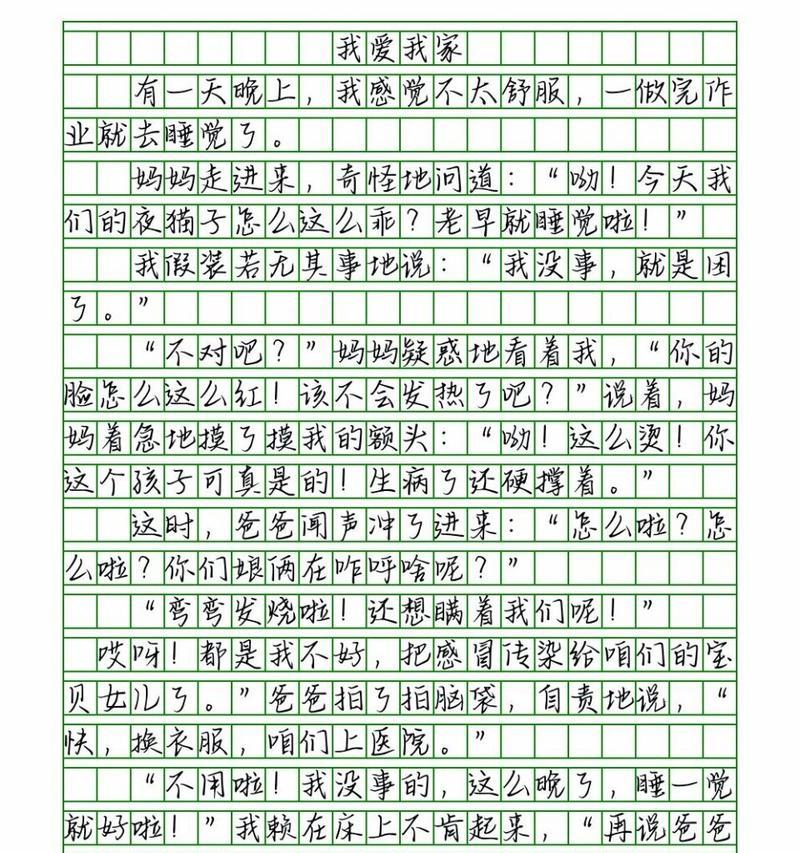 我爱我家
有一天晚上，我感觉不太舒服，一做完作
业就去睡觉了。
妈妈走进来，奇怪地问道：“呦！今天我
们的夜猫子怎么这么乖？老早就睡觉啦！”
我假装若无其事地说：“我没事，就是困
了。”
“不对吧？”妈妈疑惑地看着我，“你的
脸怎么这么红！该不会发热了吧？”说着，妈
妈着急地摸了摸我的额头：“呦！这么烫！你
这个孩子可真是的！生病了还硬撑着。”
这时，爸爸闻声冲了进来：“怎么啦？怎
么啦？你们娘俩在咋呼啥呢？”
“弯弯发烧啦！还想瞒着我们呢！”
哎呀！都是我不好，把感冒传染给咱们的宝
贝女儿了。”爸爸拍了拍脑袋，自责地说，“
快，换衣服，咱们上医院。”
“不用啦！我没事的，这么晚了，睡一觉
就好啦！”我赖在床上不肯起来，“再说爸爸